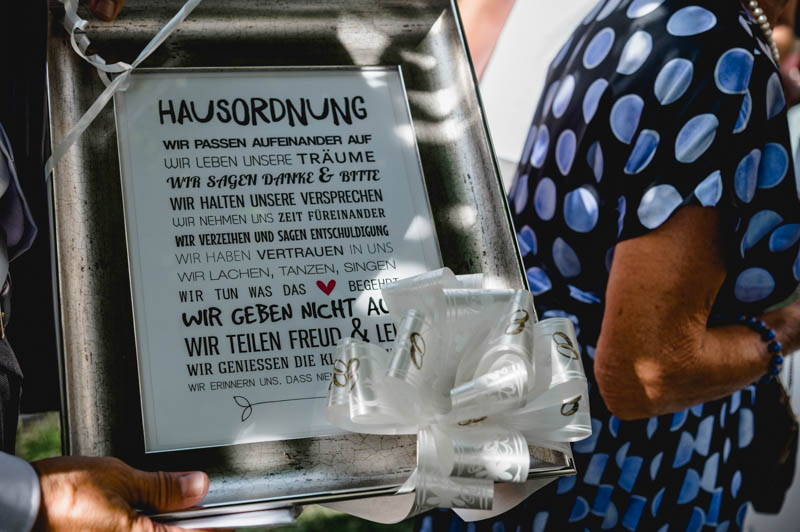 HAUSORDNUNG
WIR PASSEN AUFEINANDER AUF
WIR LEBEN UNSERE TRÄUME
WIR SAGEN DANKE & BITTE
WIR HALTEN UNSERE VERSPRECHEN
WIR NEHMEN UNS ZEIT FÜREINANDER
WIR VERZEIHEN UND SAGEN ENTSCHULDIGUNG
WIR HABEN VERTRAUEN IN UNS
WIR LACHEN, TANZEN, SINGEN
WIR TUN WAS DAS ❤ BEGEHRT
WIR GEBEN NICHT AU
WIR TEILEN FREUD & LEI
WIR GENIESSEN DIE KL
WIR ERINNERN UNS, DASS NIE